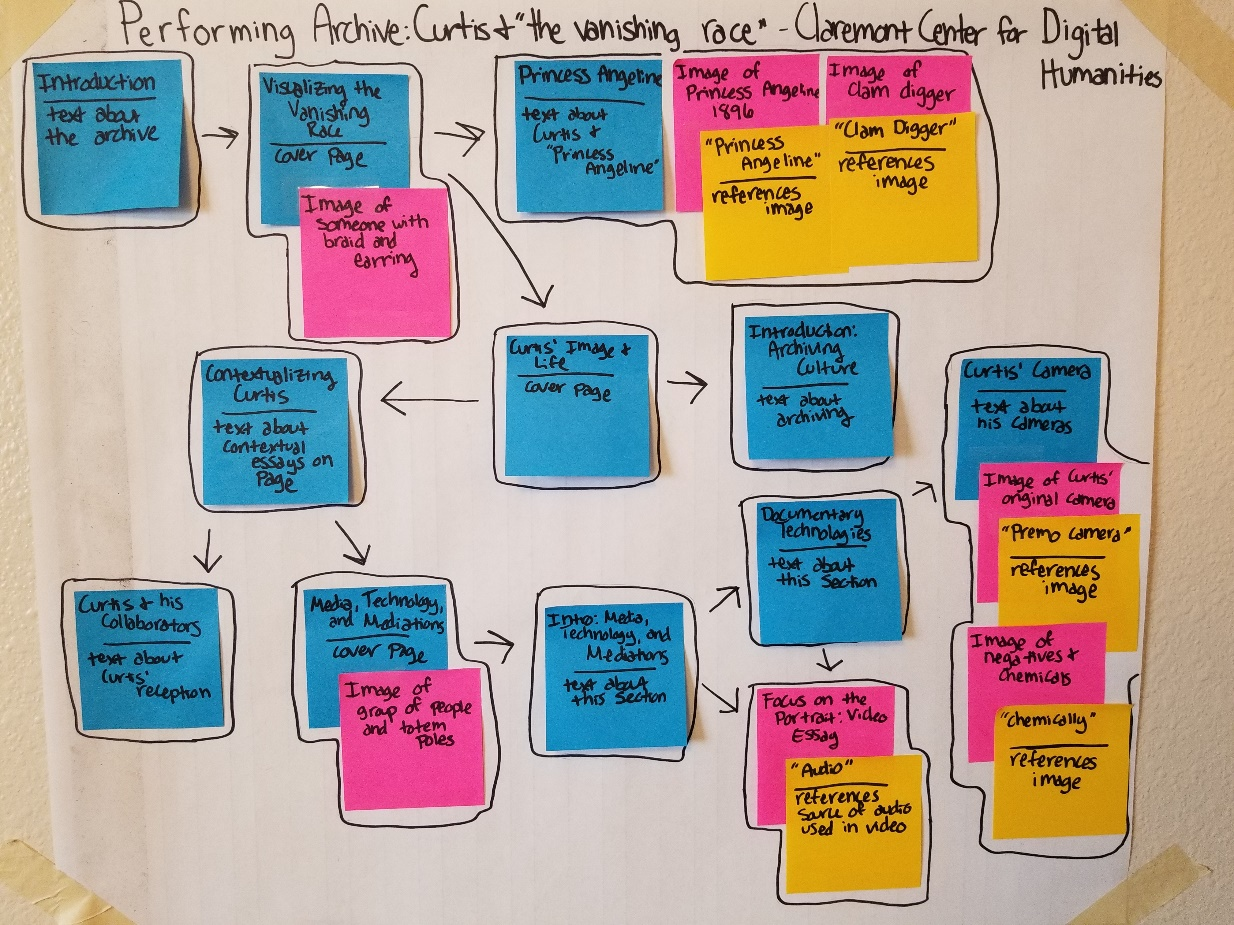 Performing Archive: Curtis + "the vanishing race" - Claremont Center for Digital
Humanities
Introduction
text about
the archive
Visualizing the
Vanishing
Race
cover Page
Image of
someone with
braid and
earring
Princess Angeline
text about
Curtis +
"Princess
Angeline"
Image of
Princess Angeline
1896
"Princess
Angeline"
references
image
Image of
Clam digger
"Clam Digger"
references
image
Contextualizing
Curtis
text about
contextual
essays on
Page
Curtis' Image +
Life
cover page
Introduction:
Archiving
Culture
text about
archiving
Curtis' Camera
text about
his cameras
Image of Curtis'
original camera
"Premo camera"
references
image
Image of
negatives +
chemicals
"chemically"
references
image
Curtis + his
Collaborators
text about
Curtis'
reception
Media, Technology,
and Mediations
cover Page
Image of
group of people
and totem
Poles
Intro: Media,
Technology, and
Mediations
text about
this Section
Documentary
Technologies
text about
this Section
Focus on the
Portrait: Video
Essay
"Audio"
references
source of audio
used in video